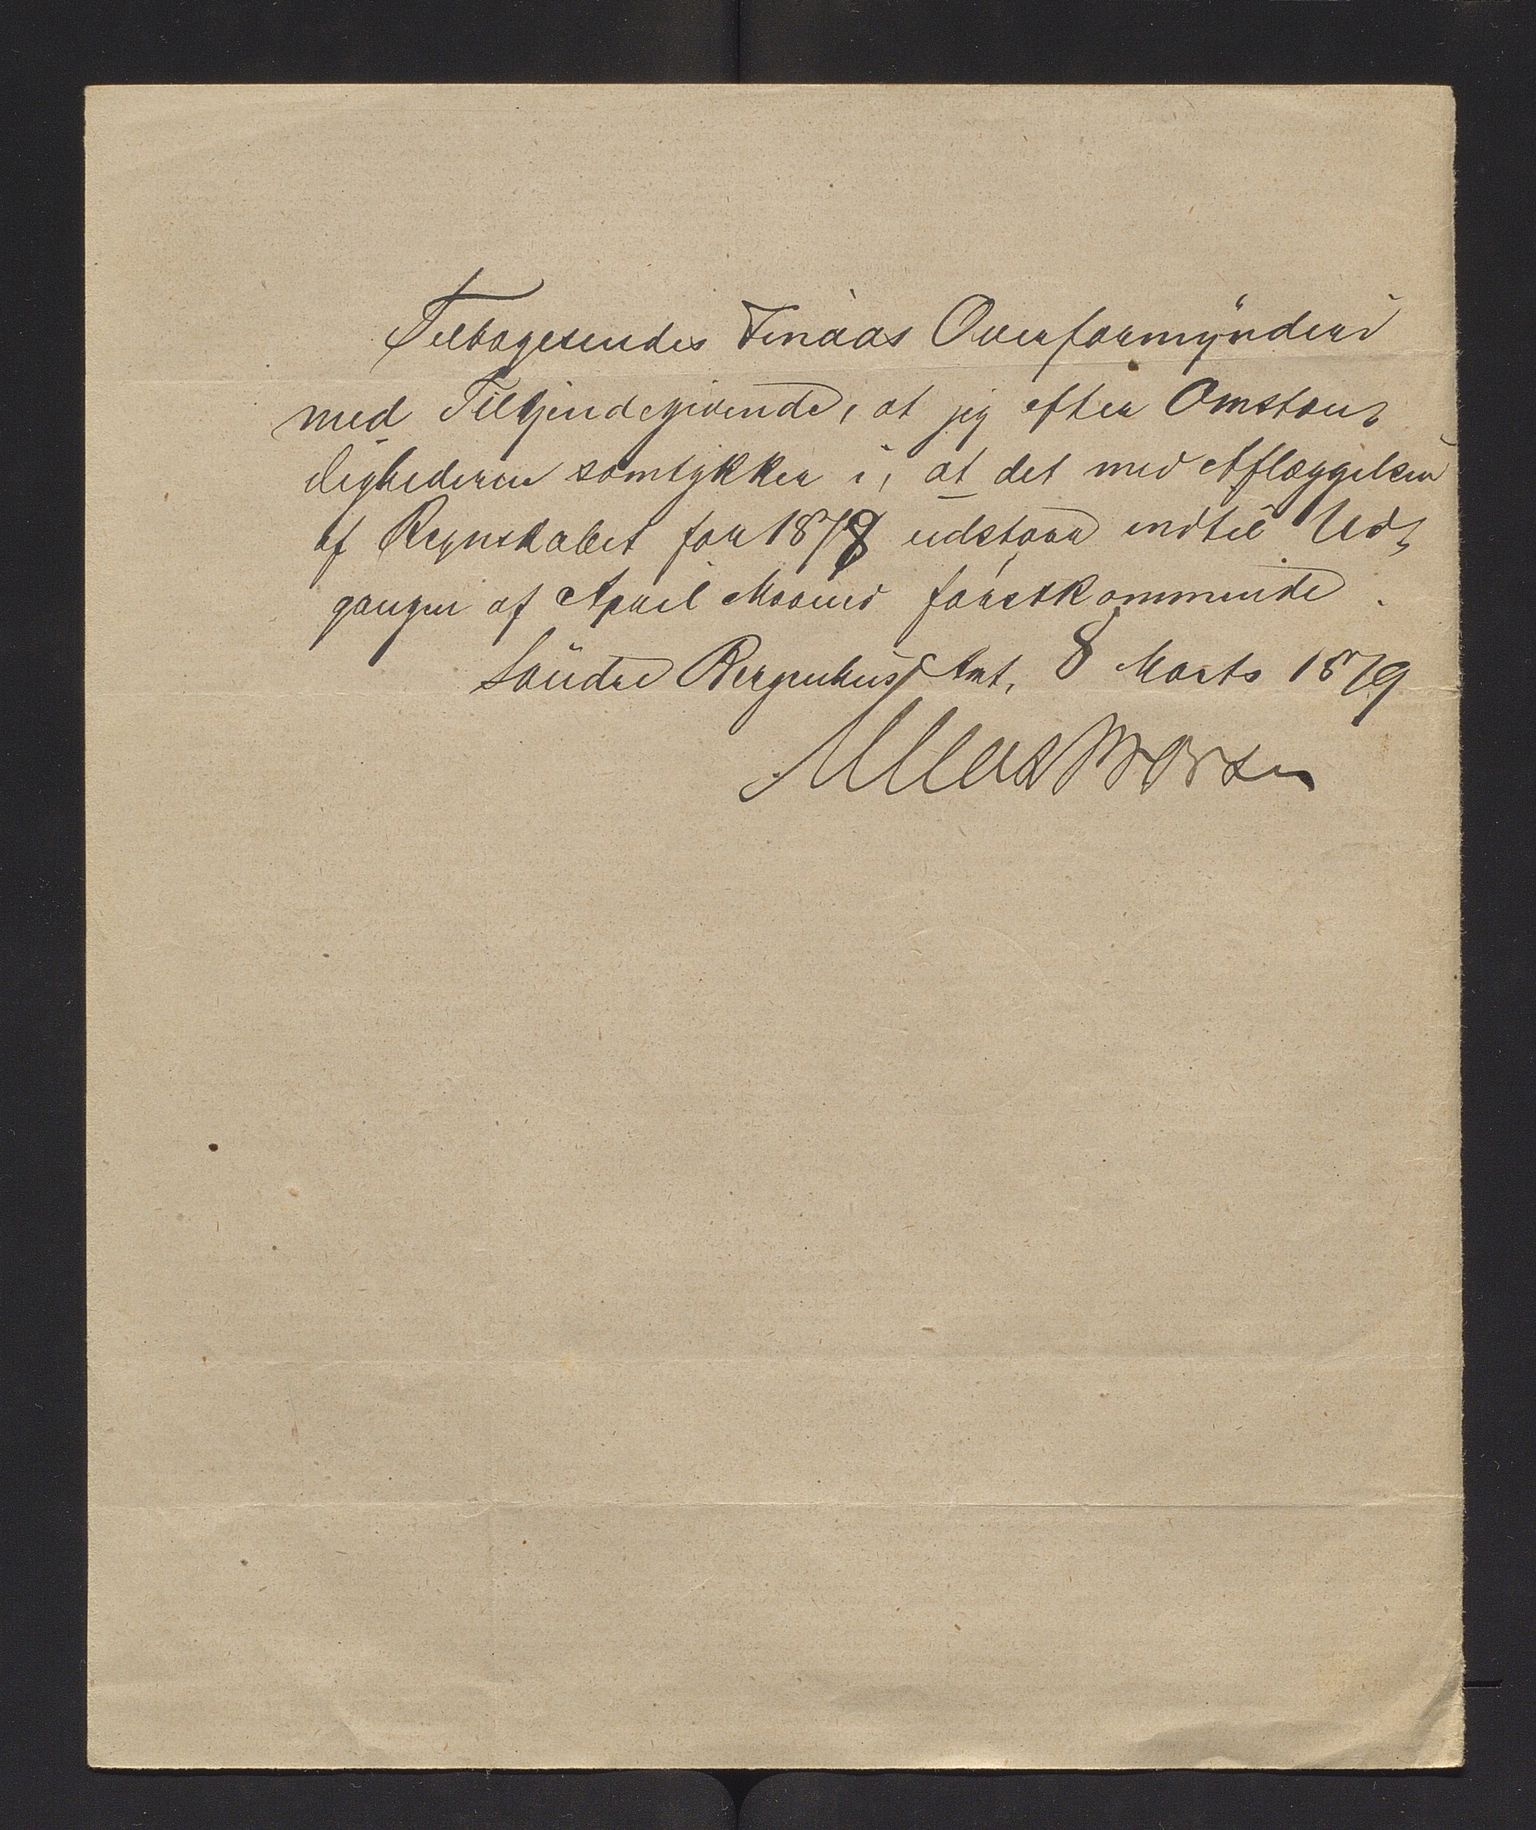 Tilbagesendes Finaas Overformynderi
med Tilkjendegivende, at jeg efter Omstæn-
dighederne samtykker i, at det med Aflæggelsen
af Regnskabet for 1878 udstaar indtil Ud-
gangen af April Maaned førstkommende.
Søndre Bergenhus Amt, 8 Marts 1879